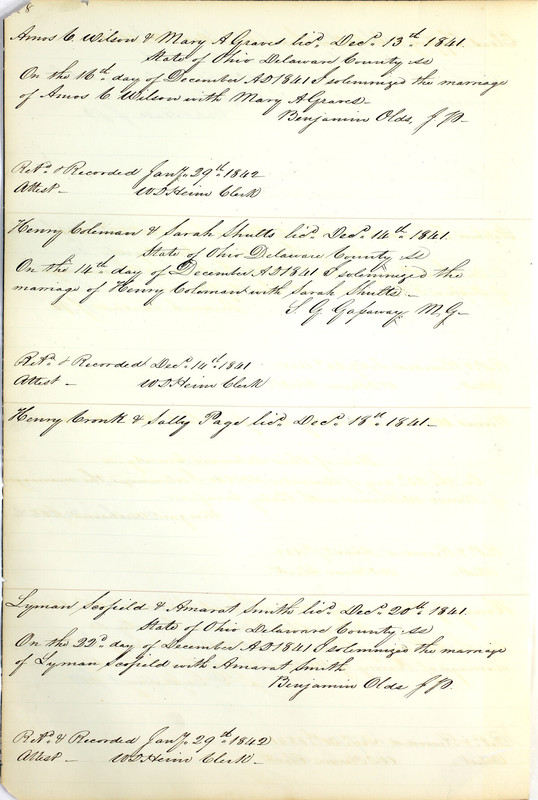 8
Amos C. Wilson & Mary A Graves lic. Dec. 13th 1841.
State of Ohio Delawar County ss
On the 16th day of December AD 1841 I solemnized the marriage
of Amos C. Wilson with Mary A Graves
Benjamin Olds, J P.
Ret. & Recorded Jany. 29th 1842
Attest - W D Heim Clerk
Henry Coleman & Sarah Shults lic. Dec. 14th 1841.
State of Ohio Delaware County ss
On the 14th day of December AD 1841 I solemnized the
marriage of Henry Coloman with Sarah Shults -
S G M, G-
Ret. & Recorded Dec. 14th 1841
Attest - W D Heim Clerk
Henry Cronk & Sally Page lic. Dec. 18th 1841-
Lyman Scofield & Amarat Smith lic. Dec. 20th 1841.
State of Ohio Delaware County ss
On the 22d day of December AD 1841 I solemnized the marriage
of Lyman Scofield with Amarat Smith
Benjamin Olds J P.
Ret. & Recorded Jany. 29th 1842
Attest - W D Heim Clerk -